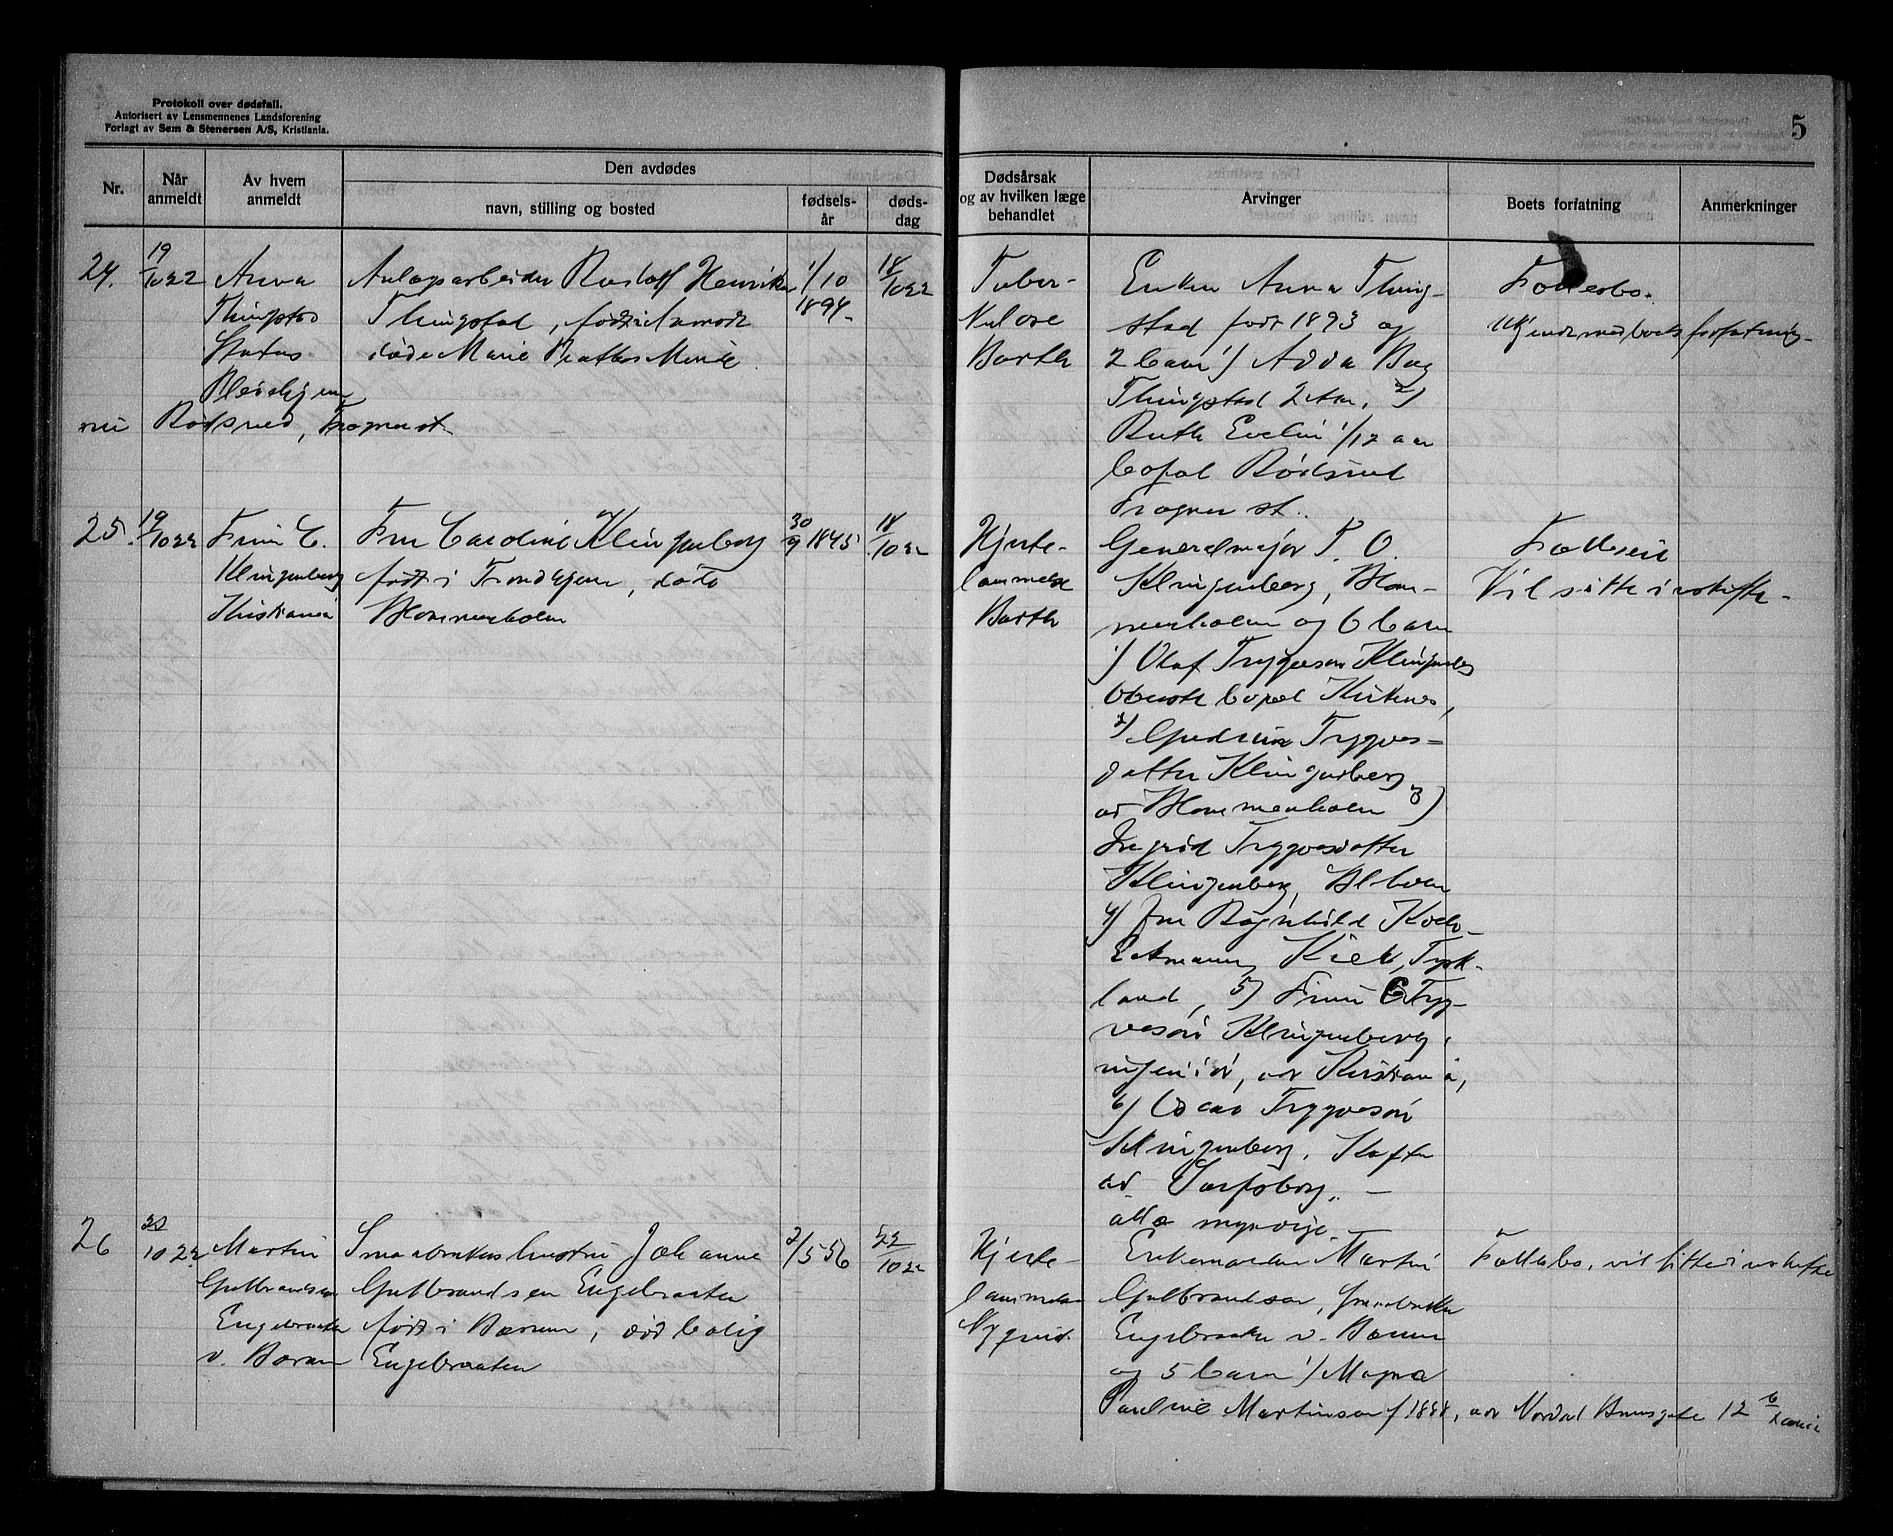 Protokoll over dødsfall.
Autorisert av Lensmennenes Landsforening
Forlagt av Sem & Stenersen A/S, Kristiania.
5
Nr.
Når anmeldt
Av hvem anmeldt
Den avdødes
navn, stilling og bosted
fødsels-år
døds-dag
Dødsårsak og av hvilken læge behandlet
Arvinger
Boets forfatning
Anmerkninger
24.
19/10 22
Anna
Thingstad
Anlægsarbeider Henrik
Thingstad, født i
døde Marie
nu
Rødsrud, Frogner st.
1/10
1894
18/10 22
Tuber-
kulose
Barth
Enken Anna Thing-
stad født 1893 og
2 barn 1)
Thingstad 2 Aar, 2)
Ruth Evelin 1/12 aar
bopæl Rødsrud
Frogner st.
Fællesbo.
25.
19/10 22
Finn C.
Klingenberg
Kristiania
Fru Caroline Klingenberg
født i Trondhjem, død
Blommenholm
30/9 1845
18/10 22
Hjerte-
lammelse
Barth
Generalmajor T. O.
Klingenberg, Blom-
menholm og 6 barn
1) Olaf Trygveson Klingenberg
Oberst bopæl Kirkenes,
2) Gudrun Trygves-
datter Klingenberg
ad Blommenholm 3)
Ingrid Trygvesdatter
Klingenberg,
4) fru Ragnhild
Kiel, Tysk-
land, 5) Finn C Tryg-
vesøn Klingenberg,
ingeniør, adr Kristiania,
6) Oscar Trygvesøn
Klingenberg.
ad. Sarpsborg. -
alle myndige.
Fælleseie
Vil sitte i uskifte -
26
10 22
Martin
Gulbrandsen
Engebraaten
v. Bærum
Smaabrukerhustru Johanne
Gulbrandsen Engebraaten
født i Bærum, død bolig
Engebraaten
2/5 56
22/10 22
Hjerte-
lammelse
Nyquist
Enkemanden Martin
Gulbrandsen, Smaabruker
Engebraaten v. Bærum
og 5 barn 1) Magna
Pauline Martinsen f. 1888, adr Nordal Brunsgate 12
Fællesbo, vil sitte i uskifte